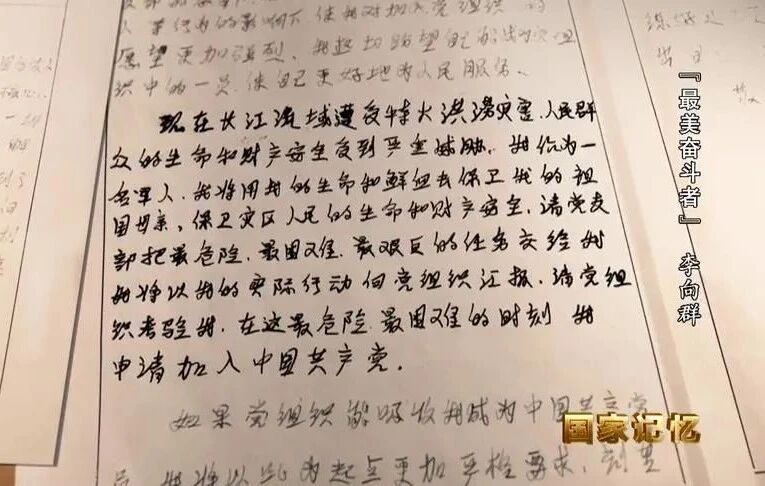 愿望更加强烈，我超切盼望自己能成为党组
织中的一员，使自己更好地为人民服务。
现在长江流域遭受特大洪涝灾害，人民群
众的生命和财产安全受到严重威胁，我作为一
名军人，我将用我的生命和鲜血去保卫我的祖
国母亲，保卫灾区人民的生命和财产安全，请党支
部把最危险、最困难、最艰巨的任务交给我
我将以我的实际行动向党组织汇报，请党组
织考验我，在这最危险 最困难的时刻 我
申请加入中国共产党。
如果党组织能吸收我成为中国共产党
员 我将以此为起点更加严格要求，刻苦
『最美奋斗者』 李向群
国家记忆